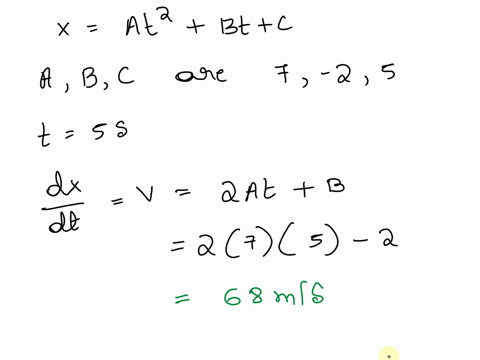 x = At² + Bt + C
A, B, C are 7, -2, 5
t = 5 s
dx/dt = V = 2At + B
= 2(7)(5) - 2
= 68 m/s